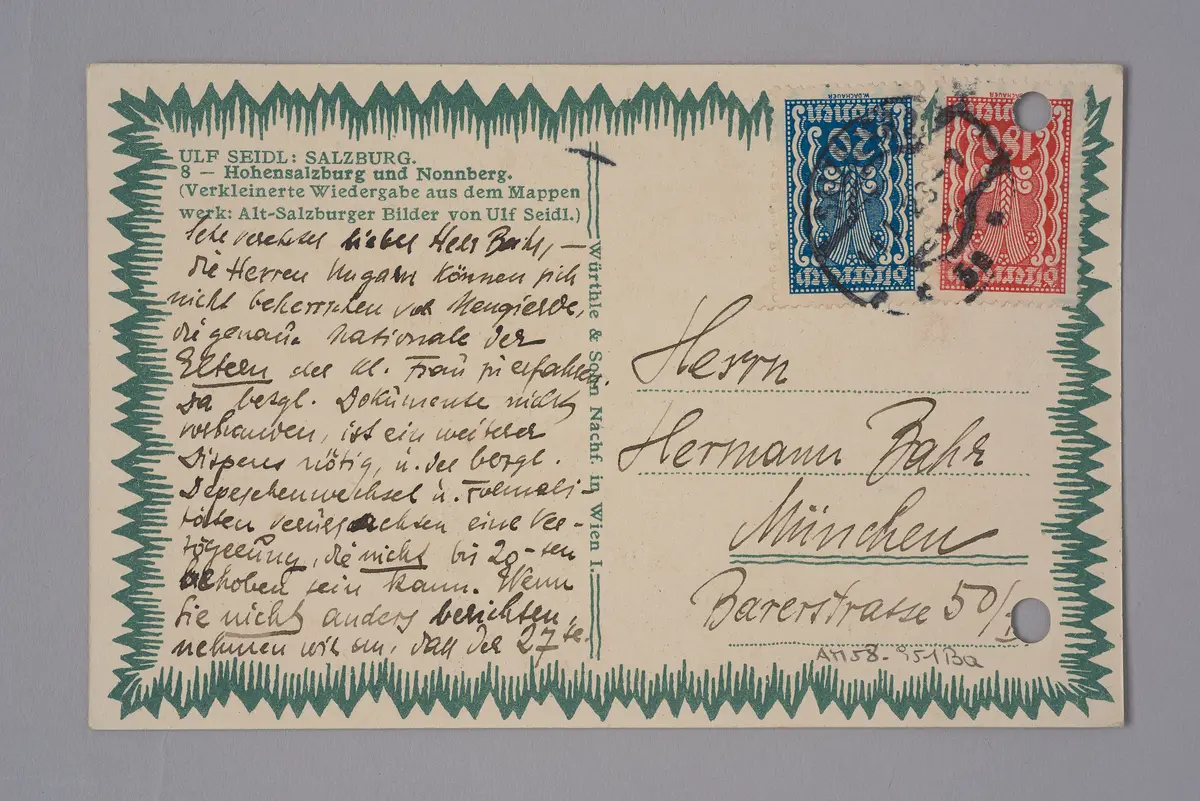 ULF SEIDL: SALZBURG.
8 — Hohensalzburg und Nonnberg.
(Verkleinerte Wiedergabe aus dem Mappen
werk: Alt-Salzburger Bilder von Ulf Seidl.)
Sehr verehrter lieber Herr Bahr, —
die Herren Ungarn können sich
nicht beherrschen vor Neugierde,
die genaue Nationale der
Eltern der kl. Frau zu erfahren.
Da bezgl. Dokumente nicht
vorhanden, ist ein weiterer
Dispens nötig, u. der bezgl.
Depeschenwechsel u. Formali-
täten verursachten eine Ver-
zögerung, die nicht bis 20-ten
behoben sein kann. Wenn
Sie nicht anders berichten,
nehmen wir an, daß der 27te.
Würthle & Sohn Nachf. in Wien I.
W. DACHAUER
20
Österreich
DACHAUER
180
Österreich
Herrn
Hermann Bahr
München
Barerstrasse 50/
AM58-951Ba